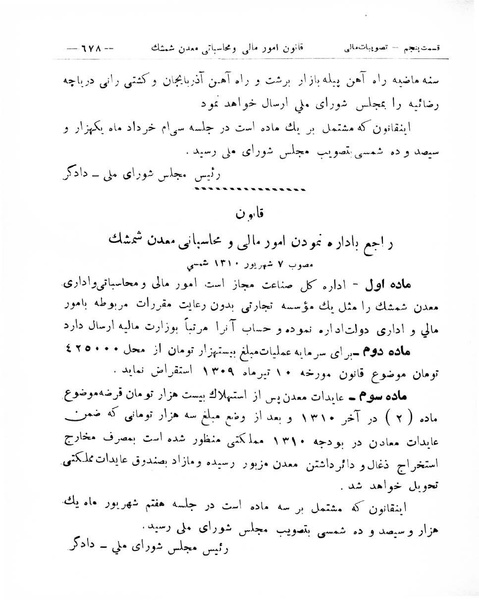 قسمت پنجم — تصویبات مالی    قانون امور مالی ومحاسباتی معدن شمشك    — ٦٧٨ —
سنه ماضیه راه آهن پیله بازار برشت و راه آهن آذربایجان و کشتی رانی دریاچه
رضائیه را بمجلس شورای ملی ارسال خواهد نمود
اینقانون که مشتمل بر یك ماده است در جلسه سی‌ام خرداد ماه یکهزار و
سیصد و ده شمسی بتصویب مجلس شورای ملی رسید .
رئیس مجلس شورای ملی ــ دادگر
قانون
راجع باداره نمودن امور مالی و محاسباتی معدن شمشك
مصوب ۷ شهریور ۱۳۱۰ شمسی
ماده اول - اداره کل صناعت مجاز است امور مالی ومحاسباتی واداری
معدن شمشك را مثل یك مؤسسه تجارتی بدون رعایت مقررات مربوطه بامور
مالی و اداری دولت اداره نموده و حساب آنرا مرتباً بوزارت مالیه ارسال دارد
ماده دوم - برای سرمایه عملیات مبلغ بیستهزار تومان از محل ٤٢٥٠٠٠
تومان موضوع قانون مورخه ۱۰ تیرماه ۱۳۰۹ استقراض نماید .
ماده سوم - عایدات معدن پس از استهلاك بیست هزار تومان قرضه موضوع
ماده ( ۲ ) در آخر ۱۳۱۰ و بعد از وضع مبلغ سه هزار تومانی که ضمن
عایدات معادن در بودجه ۱۳۱۰ مملکتی منظور شده است بمصرف مخارج
استخراج ذغال و دائر داشتن معدن مزبور رسیده ومازاد بصندوق عایدات مملکتی
تحویل خواهد شد .
اینقانون که مشتمل بر سه ماده است در جلسه هفتم شهریور ماه یك
هزار و سیصد و ده شمسی بتصویب مجلس شورای ملی رسید .
رئیس مجلس شورای ملی ــ دادگر